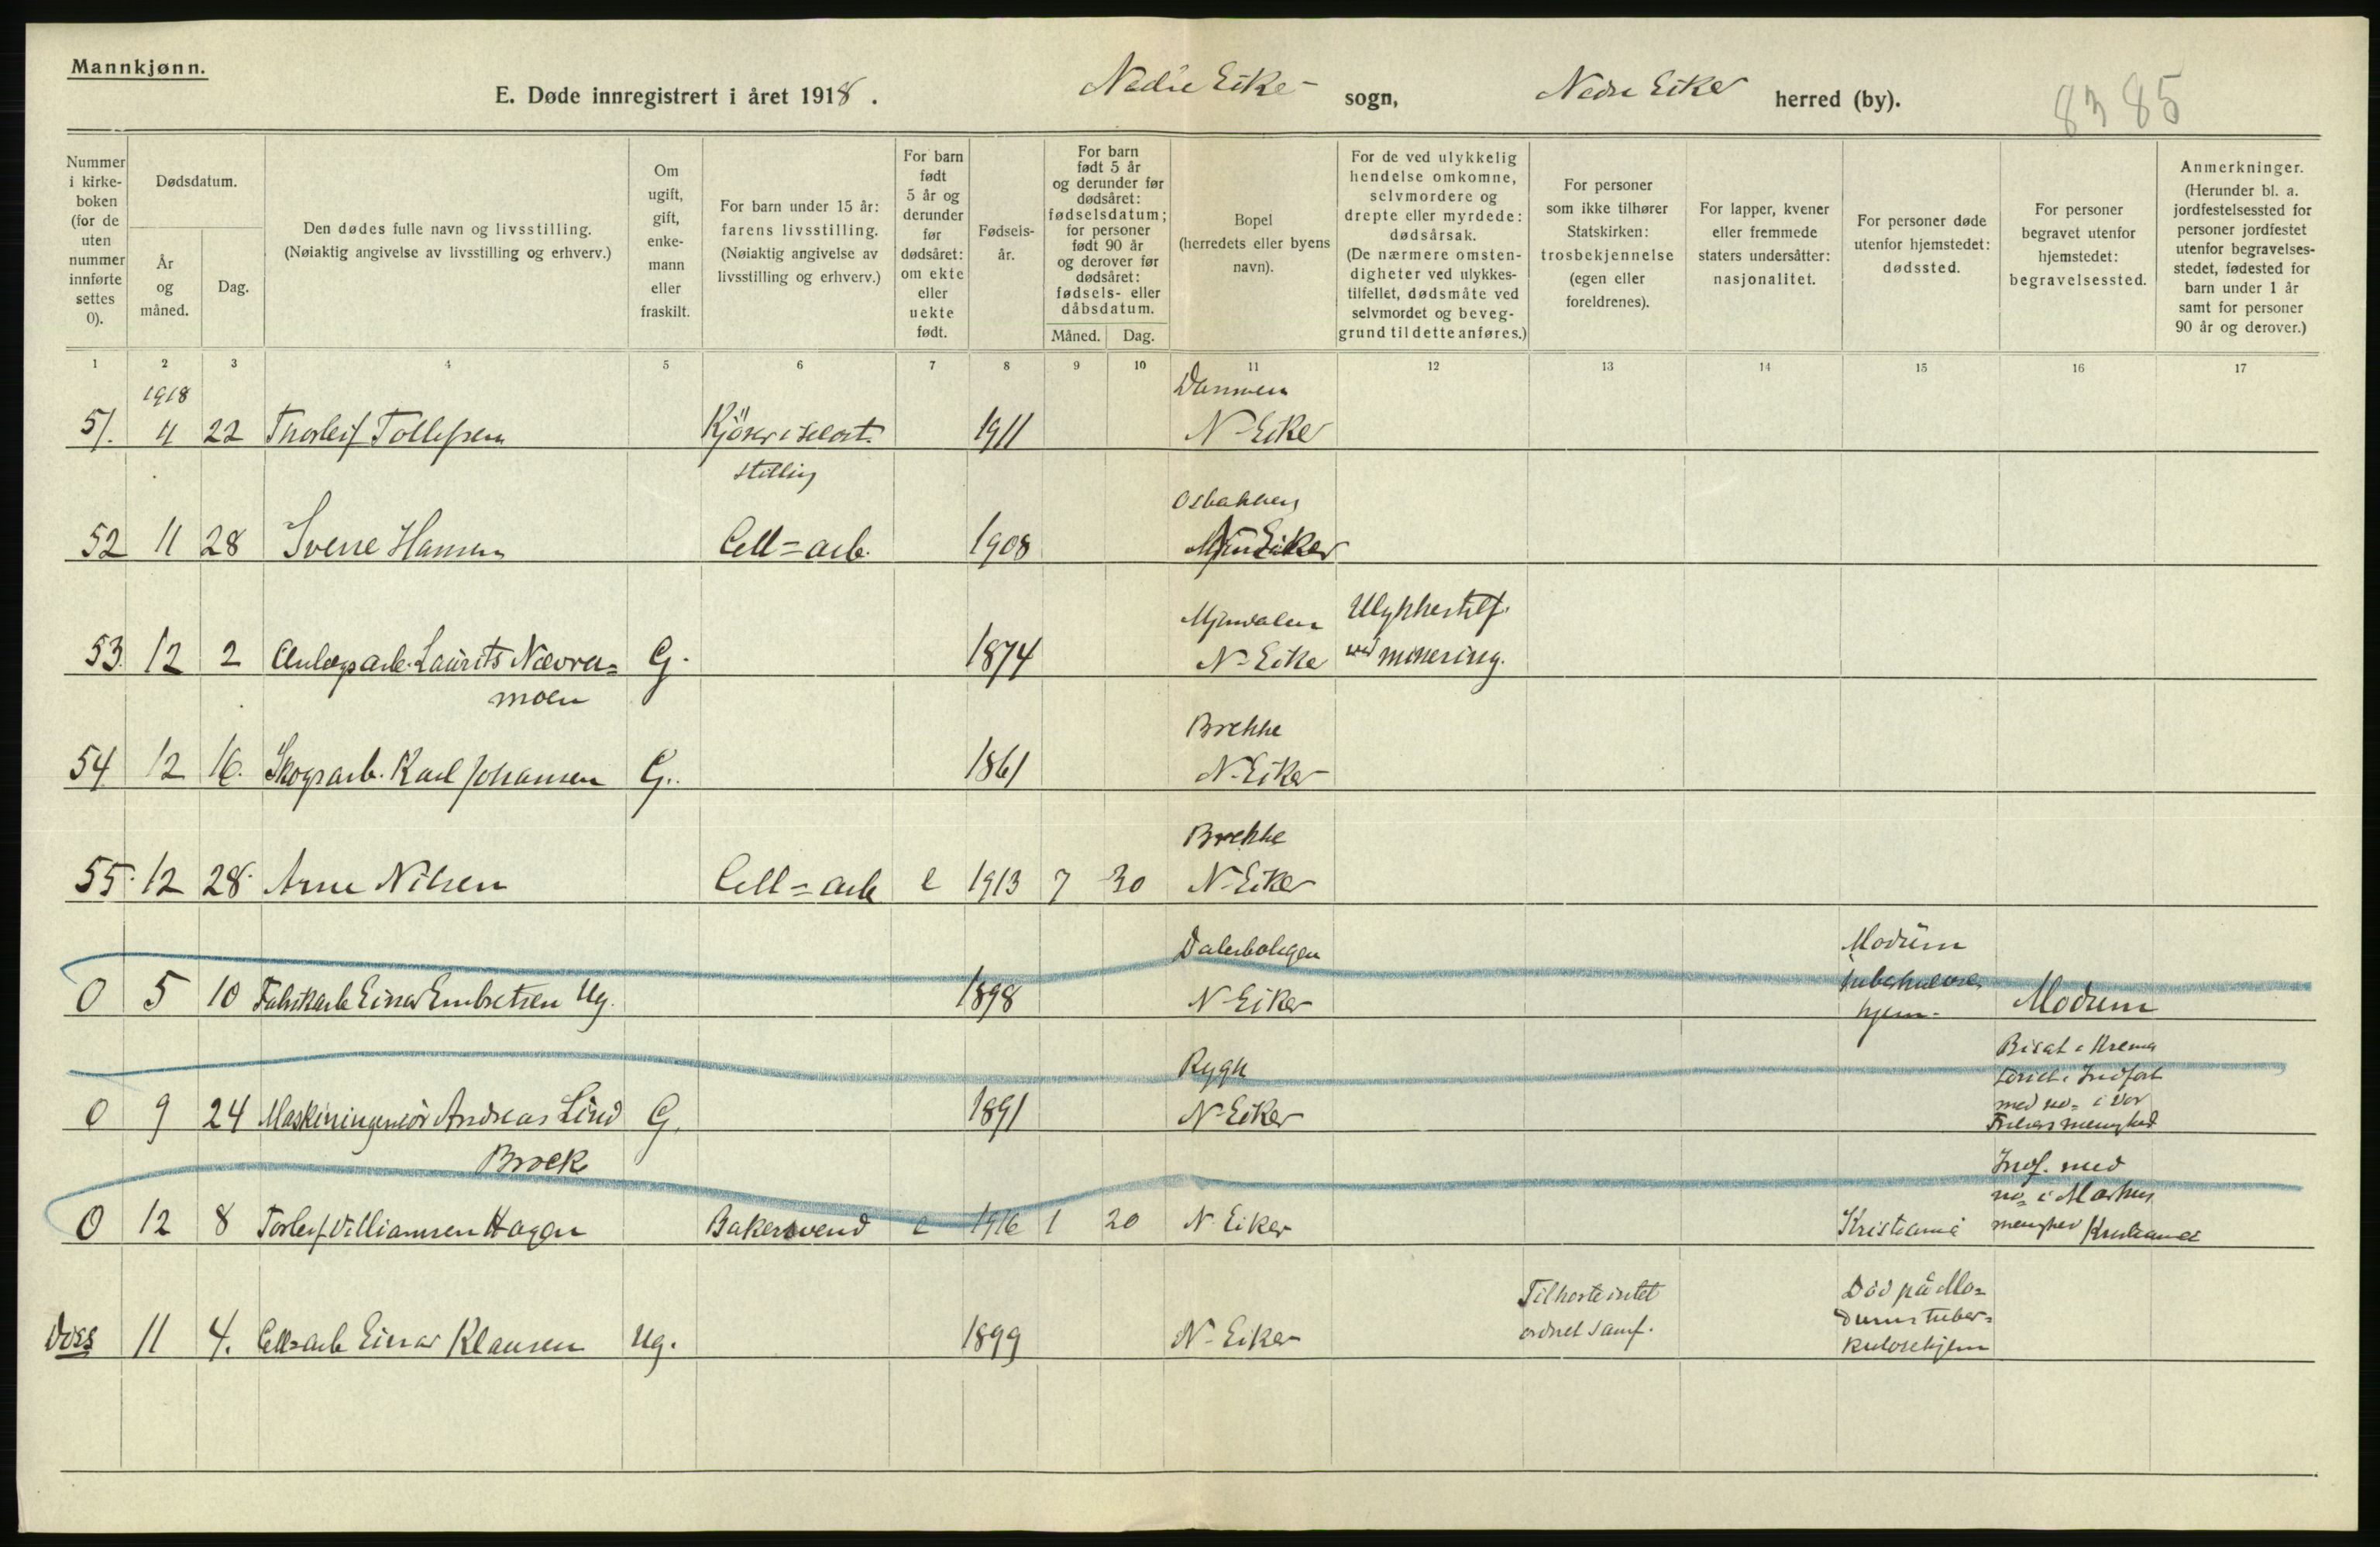 Mannkjønn.
E. Døde innregistrert i året 1918. Nedre Eiker sogn, Nedre Eiker herred (by). 85
Nummer i kirke- boken (for de uten nummer innførte settes 0).
Dødsdatum.
År og måned.
Dag.
Den dødes fulle navn og livsstilling.
(Nøiaktig angivelse av livsstilling og erhverv.)
Om ugift, gift, enke- mann eller fraskilt.
For barn under 15 år: farens livsstilling. (Nøiaktig angivelse av livsstilling og erhverv.)
For barn født 5 år og derunder før dødsåret: om ekte eller uekte født.
Fødsels- år.
For barn født 5 år og derunder før dødsåret: fødselsdatum; for personer født 90 år og derover før dødsåret: fødsels- eller dåbsdatum.
Måned. Dag.
Bopel (herredets eller byens navn).
For de ved ulykkelig hendelse omkomne, selvmordere og drepte eller myrdede: dødsårsak. (De nærmere omsten- digheter ved ulykkes- tilfellet, dødsmåte ved selvmordet og beveg- grund til dette anføres.)
For personer som ikke tilhører Statskirken: trosbekjennelse (egen eller foreldrenes).
For lapper, kvener eller fremmede staters undersåtter: nasjonalitet.
For personer døde utenfor hjemstedet: dødssted.
For personer begravet utenfor hjemstedet: begravelsessted.
Anmerkninger. (Herunder bl. a. jordfestelsessted for personer jordfestet utenfor begravelses- stedet, fødested for barn under 1 år samt for personer 90 år og derover.)
1 2 3 4 5 6 7 8 9 10 11 12 13 14 15 16 17
1918
51. 4 22 Thorleif Tollefsen Kjører i selvst. stilling 1911 N-Eiker
52 11 28 Sverre Hansen Cell=arb. 1908 Eiker
53. 12 2 Anlægsarb. Laurits Nævra=
moen G. 1874 Mjøndalen N-Eiker Ulykkestilf. ved minering.
54 12 16. Skogsarb. Karl Johansen G. 1861 Brekke N-Eiker
55. 12 28. Arne Nilsen Cell=arb e 1913 7 30 Brekke N-Eiker
0 5 10 Fabrikarb Einar Embretsen Ug. 1898 N-Eiker Modum tuberkulose hjem- Modum
0 9 24 Maskiningeniör Andreas Lind
Brock G. 1891 Rygh N-Eiker Bisat i Krema toriet. Indført med no= i Vor Frelsers menighed
0 12 8 Torleif Villiamsen Hagen Bakersvend e 1916 1 20 N-Eiker Kristiania Indf. med no= i Markus menighed Kristiania
Diss 11 4. Cell=arb Einar Klausen Ug. 1899 N-Eiker Tilhørte intet ordnet samf. Död på Mo= dums tuber= kulosehjem